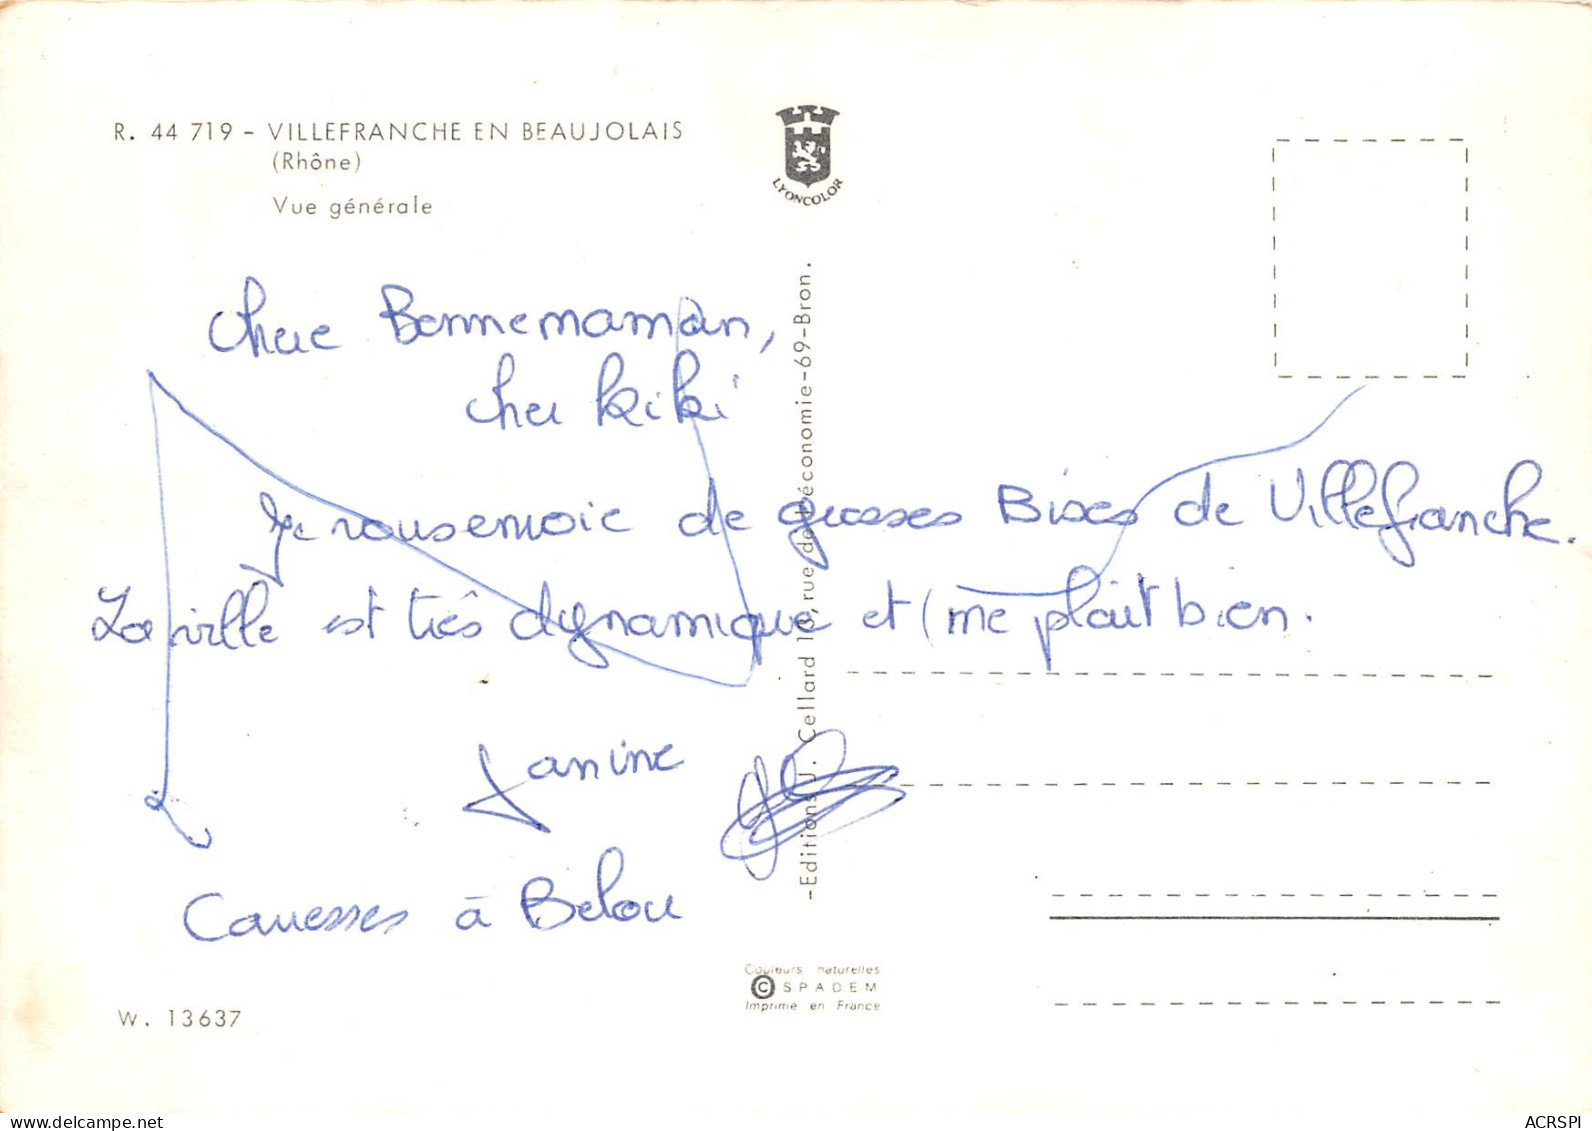 R. 44 719 - VILLEFRANCHE EN BEAUJOLAIS
(Rhône)
Vue générale
LYONCOLOR
Chère Bonnemaman,
cher Kiki
Je vous envoie de grosses Bises de Villefranche.
La ville est très dynamique et me plait bien.
Janine
Caresses à Belou
-Editions J. Cellard 13, rue de l'économie-69-Bron.
Couleurs naturelles
© SPADEM
Imprimé en France
W. 13637
www.delcampe.net
ACRSPI